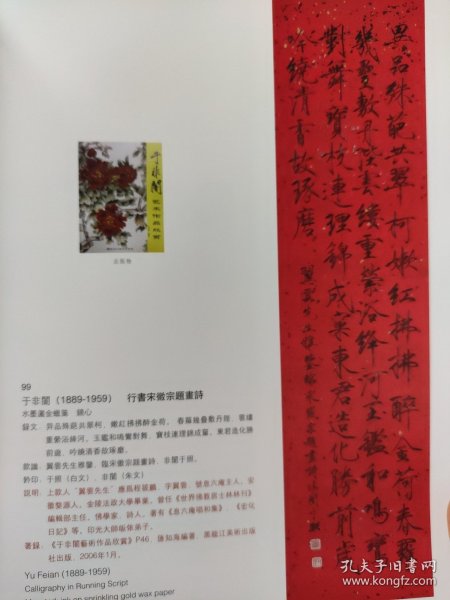 異品殊葩共翠柯嫩紅拂拂醉金荷春羅
幾疊敷丹陛雲縷重縈浴絳河玉鑑和鳴鸞
對舞寶枝連理錦成窠東君造化勝前歲
吟繞清香故琢磨
于非闇
藝術作品欣賞
出版物
99
于非闇（1889-1959） 行書宋徽宗題畫詩
水墨灑金蠟箋 鏡心
錄文：異品殊葩共翠柯，嫩紅拂拂醉金荷。春羅幾疊敷丹陛，雲縷
重縈浴絳河。玉鑑和鳴鸞對舞，寶枝連理錦成窠。東君造化勝
前歲，吟繞清香故琢磨。
款識：翼雲先生雅鑒，臨宋徽宗題畫詩，非闇于照。
鈐印：于照（白文）、非闇（朱文）
說明：上款人“翼雲先生”應爲程叔齡，字翼雲，號息六庵主人，安
徽婺源人。金陵法政大學畢業。曾任《世界佛教居士林林刊》
編輯部主任，佛學家，詩人。著有《息六庵唱和集》、《宏化
日記》等，印光大師皈依弟子。
著錄：《于非闇藝術作品欣賞》P46，唐知海編著，黑龍江美術出版
社出版，2006年1月。
Yu Feian (1889-1959)
Calligraphy in Running Script
ink on sprinkling gold wax paper
孔夫子旧书网